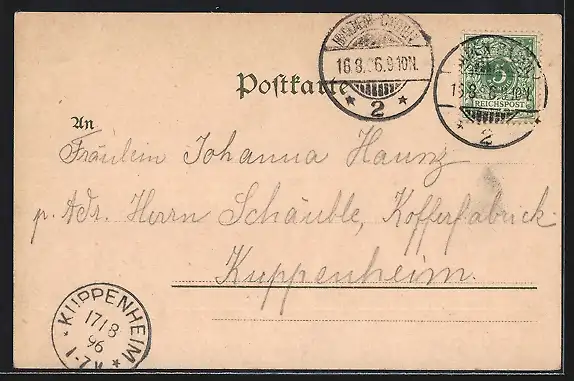 16.8.96.9-10N.
2
Postkarte
5
REICHSPOST
16.8.96.9-10N.
2
An
Fräulein Johanna Haunz
p. Adr. Herrn Schäuble, Kofferfabrick
Kuppenheim.
KUPPENHEIM
17/8
96
1-7V